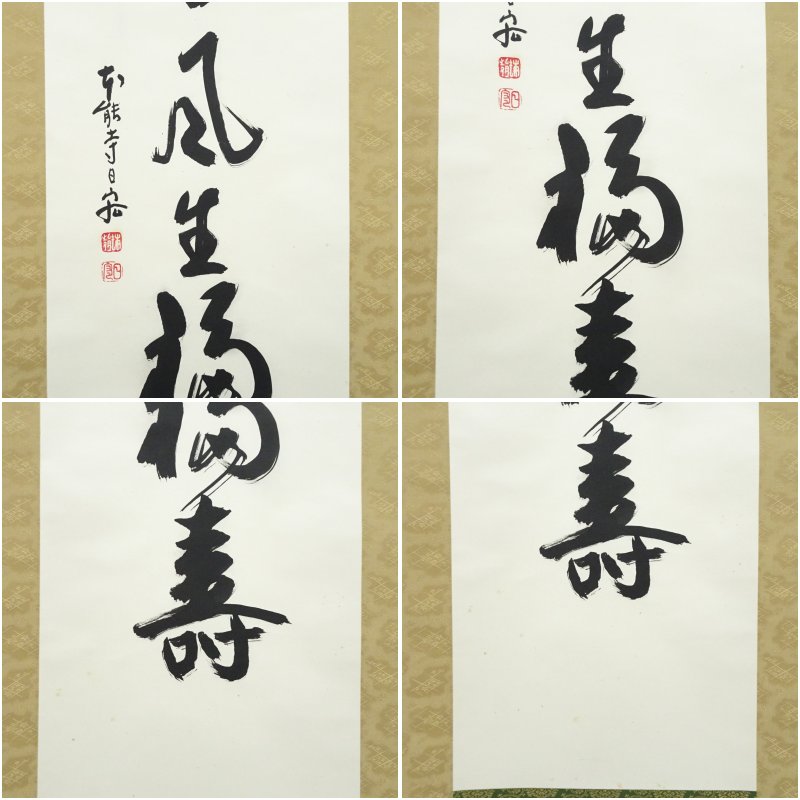 風生福
本能寺日
生福壽
福壽
壽